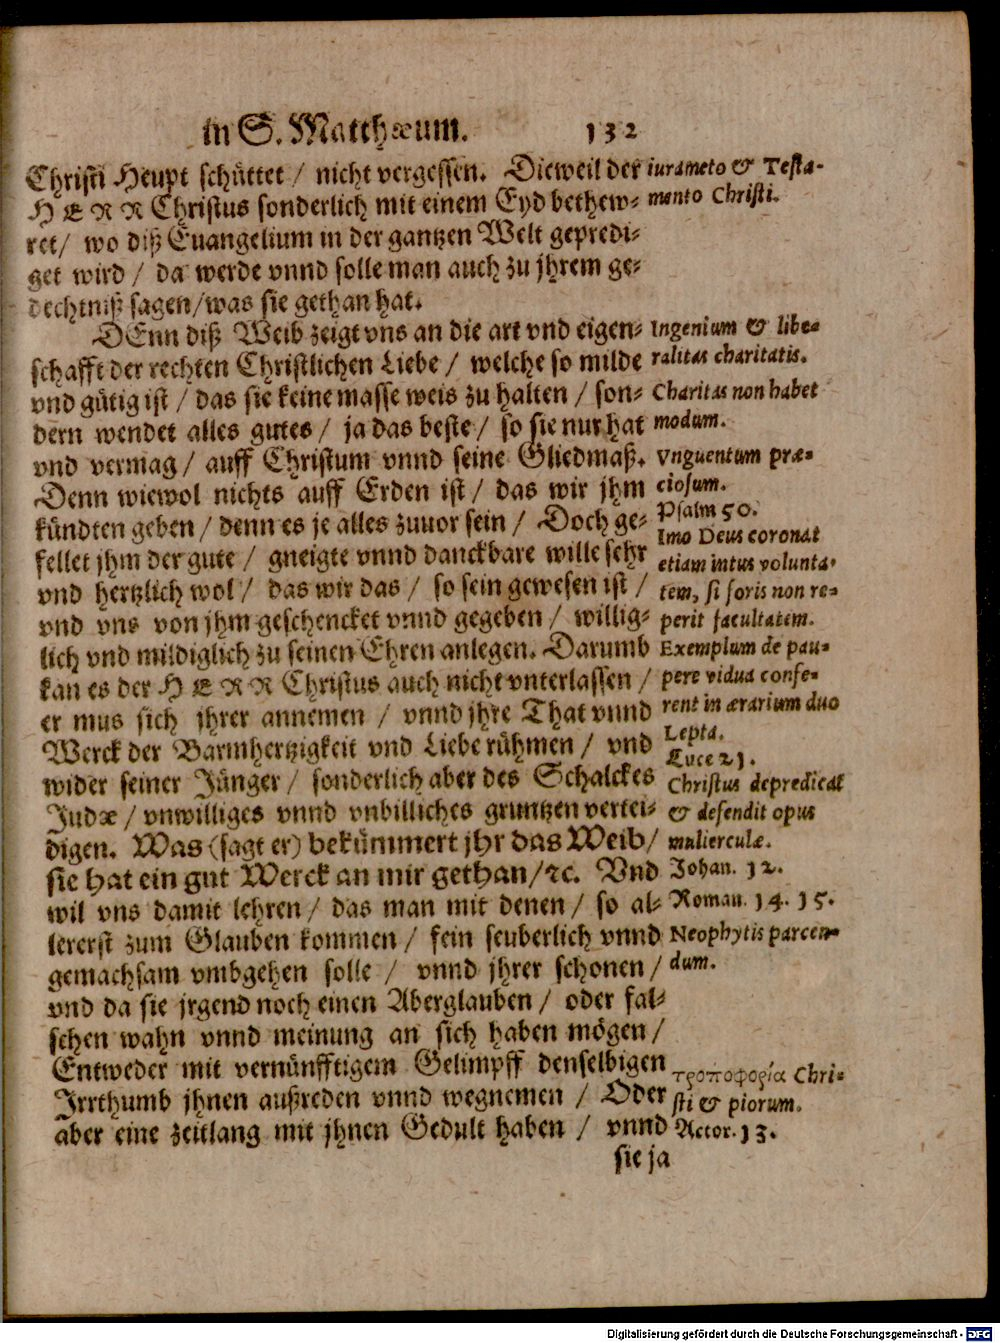 in S. Matthæum. 132
Christi Heupt schüttet / nicht vergessen. Dieweil der
HERR Christus sonderlich mit einem Eyd bethew-
ret / wo diß Euangelium in der gantzen Welt gepredi-
get wird / da werde vnnd solle man auch zu jhrem ge-
dechtniß sagen / was sie gethan hat.
DEnn diß Weib zeigt vns an die art vnd eigen-
schafft der rechten Christlichen Liebe / welche so milde
vnd gütig ist / das sie keine masse weis zu halten / son-
dern wendet alles gutes / ja das beste / so sie nur hat
vnd vermag / auff Christum vnnd seine Gliedmaß.
Denn wiewol nichts auff Erden ist / das wir jhm
kündten geben / denn es je alles zuuor sein / Doch ge-
fellet jhm der gute / gneigte vnnd danckbare wille sehr
vnd hertzlich wol / das wir das / so sein gewesen ist /
vnd vns von jhm geschencket vnnd gegeben / willig-
lich vnd mildiglich zu seinen Ehren anlegen. Darumb
kan es der HERR Christus auch nicht vnterlassen /
er mus sich jhrer annemen / vnnd jhre That vnnd
Werck der Barmhertzigkeit vnd Liebe rühmen / vnd
wider seiner Jünger / sonderlich aber des Schalckes
Judæ / vnwilliges vnnd vnbilliches gruntzen vertei-
digen. Was (sagt er) bekümmert jhr das Weib /
sie hat ein gut Werck an mir gethan / ꝛc. Vnd
wil vns damit lehren / das man mit denen / so al-
lererst zum Glauben kommen / fein seuberlich vnnd
gemachsam vmbgehen solle / vnnd jhrer schonen /
vnd da sie jrgend noch einen Aberglauben / oder fal-
schen wahn vnnd meinung an sich haben mögen /
Entweder mit vernünfftigem Gelimpff denselbigen
Irrthumb jhnen außreden vnnd wegnemen / Oder
aber eine zeitlang mit jhnen Gedult haben / vnnd
sie ja
iurameto & Testa-
mento Christi.
Ingenium & libe-
ralitas charitatis.
Charitas non habet
modum.
Vnguentum præ-
ciosum.
Psalm 50.
Imo Deus coronat
etiam intus volunta-
tem, si foris non re-
perit facultatem.
Exemplum de pau-
pere vidua confe-
rent in ærarium duo
Lepta.
Luce 21.
Christus depredicat
& defendit opus
mulierculæ.
Johan. 12.
Roman. 14. 15.
Neophytis parcen-
dum.
τροποφορία Chri-
sti & piorum.
Actor. 13.
Digitalisierung gefördert durch die Deutsche Forschungsgemeinschaft - DFG